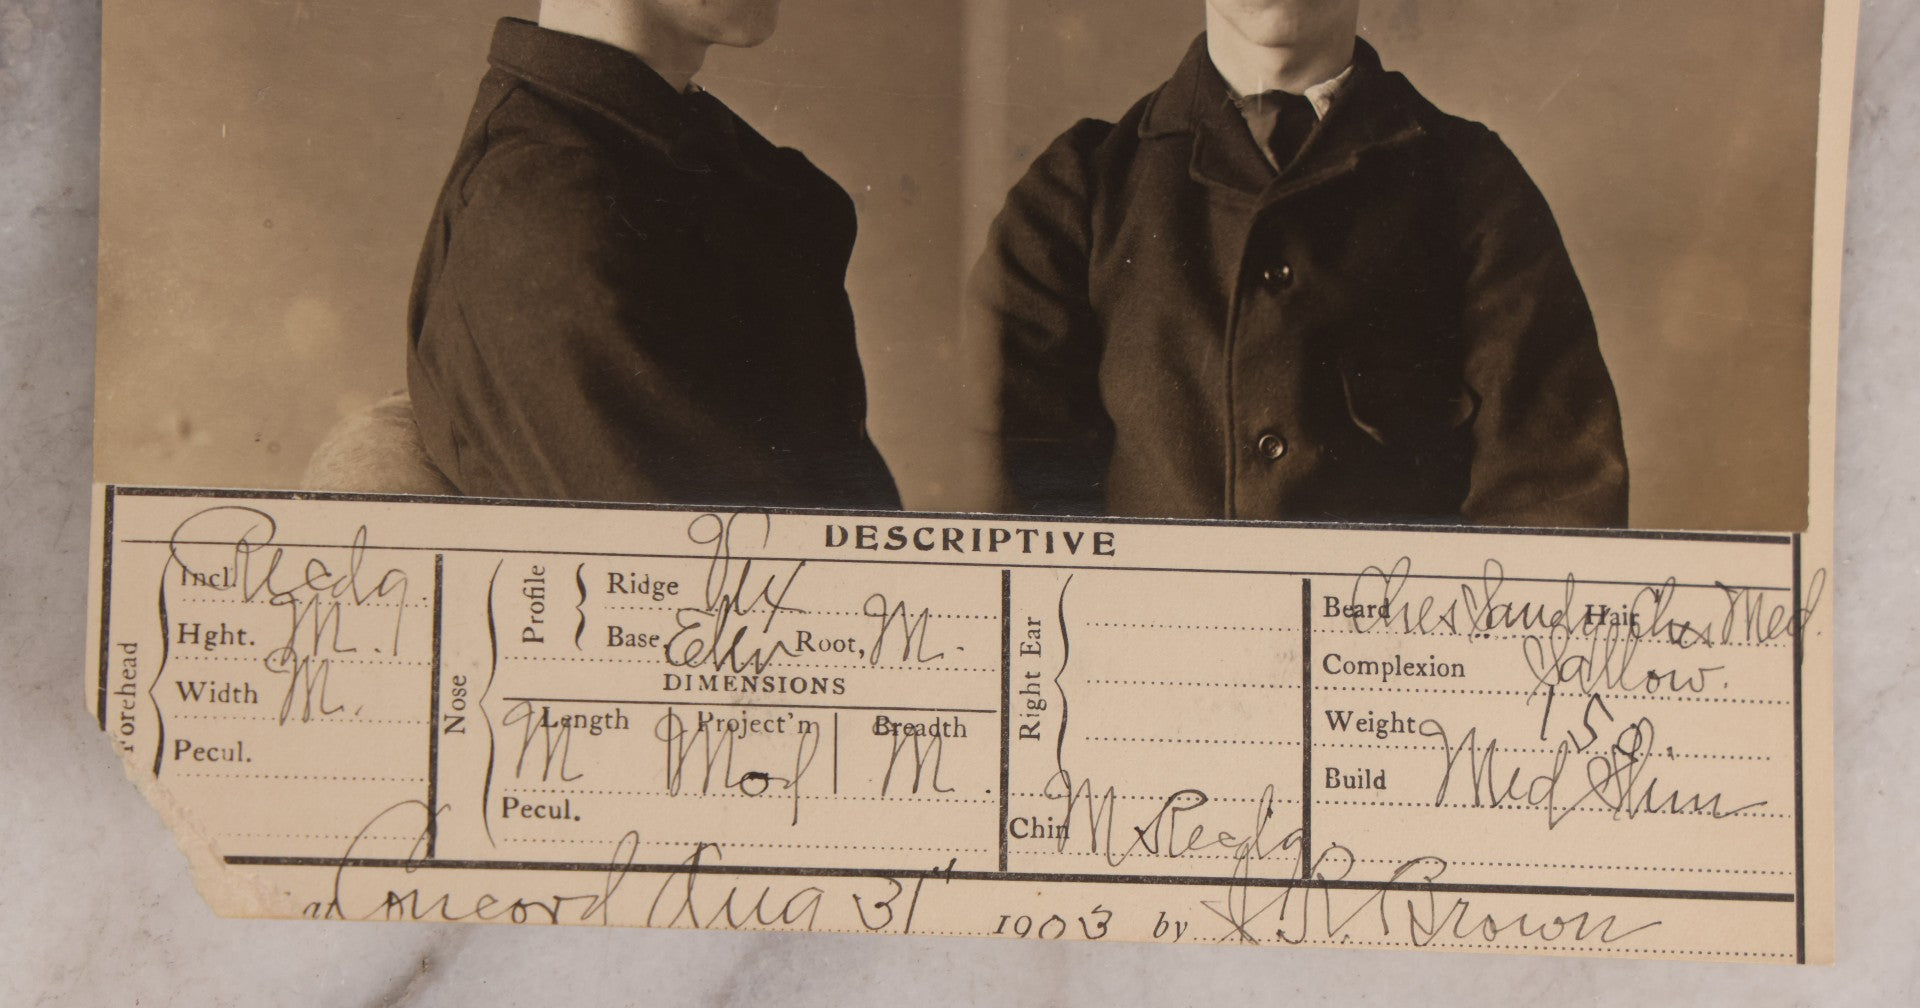 DESCRIPTIVE
Forehead
Incl. Recdg.
Hght. M.
Width M.
Pecul.
Nose
Profile
Ridge
Base, Elev Root, M.
DIMENSIONS
Length Project'n Breadth
M Mod M.
Pecul.
Right Ear
Chin M Recdg.
Beard Ches Sandy Hair Ches Med.
Complexion Sallow.
Weight 150.
Build Med Slim
at Concord Aug 31" 1903 by J. R. Brown